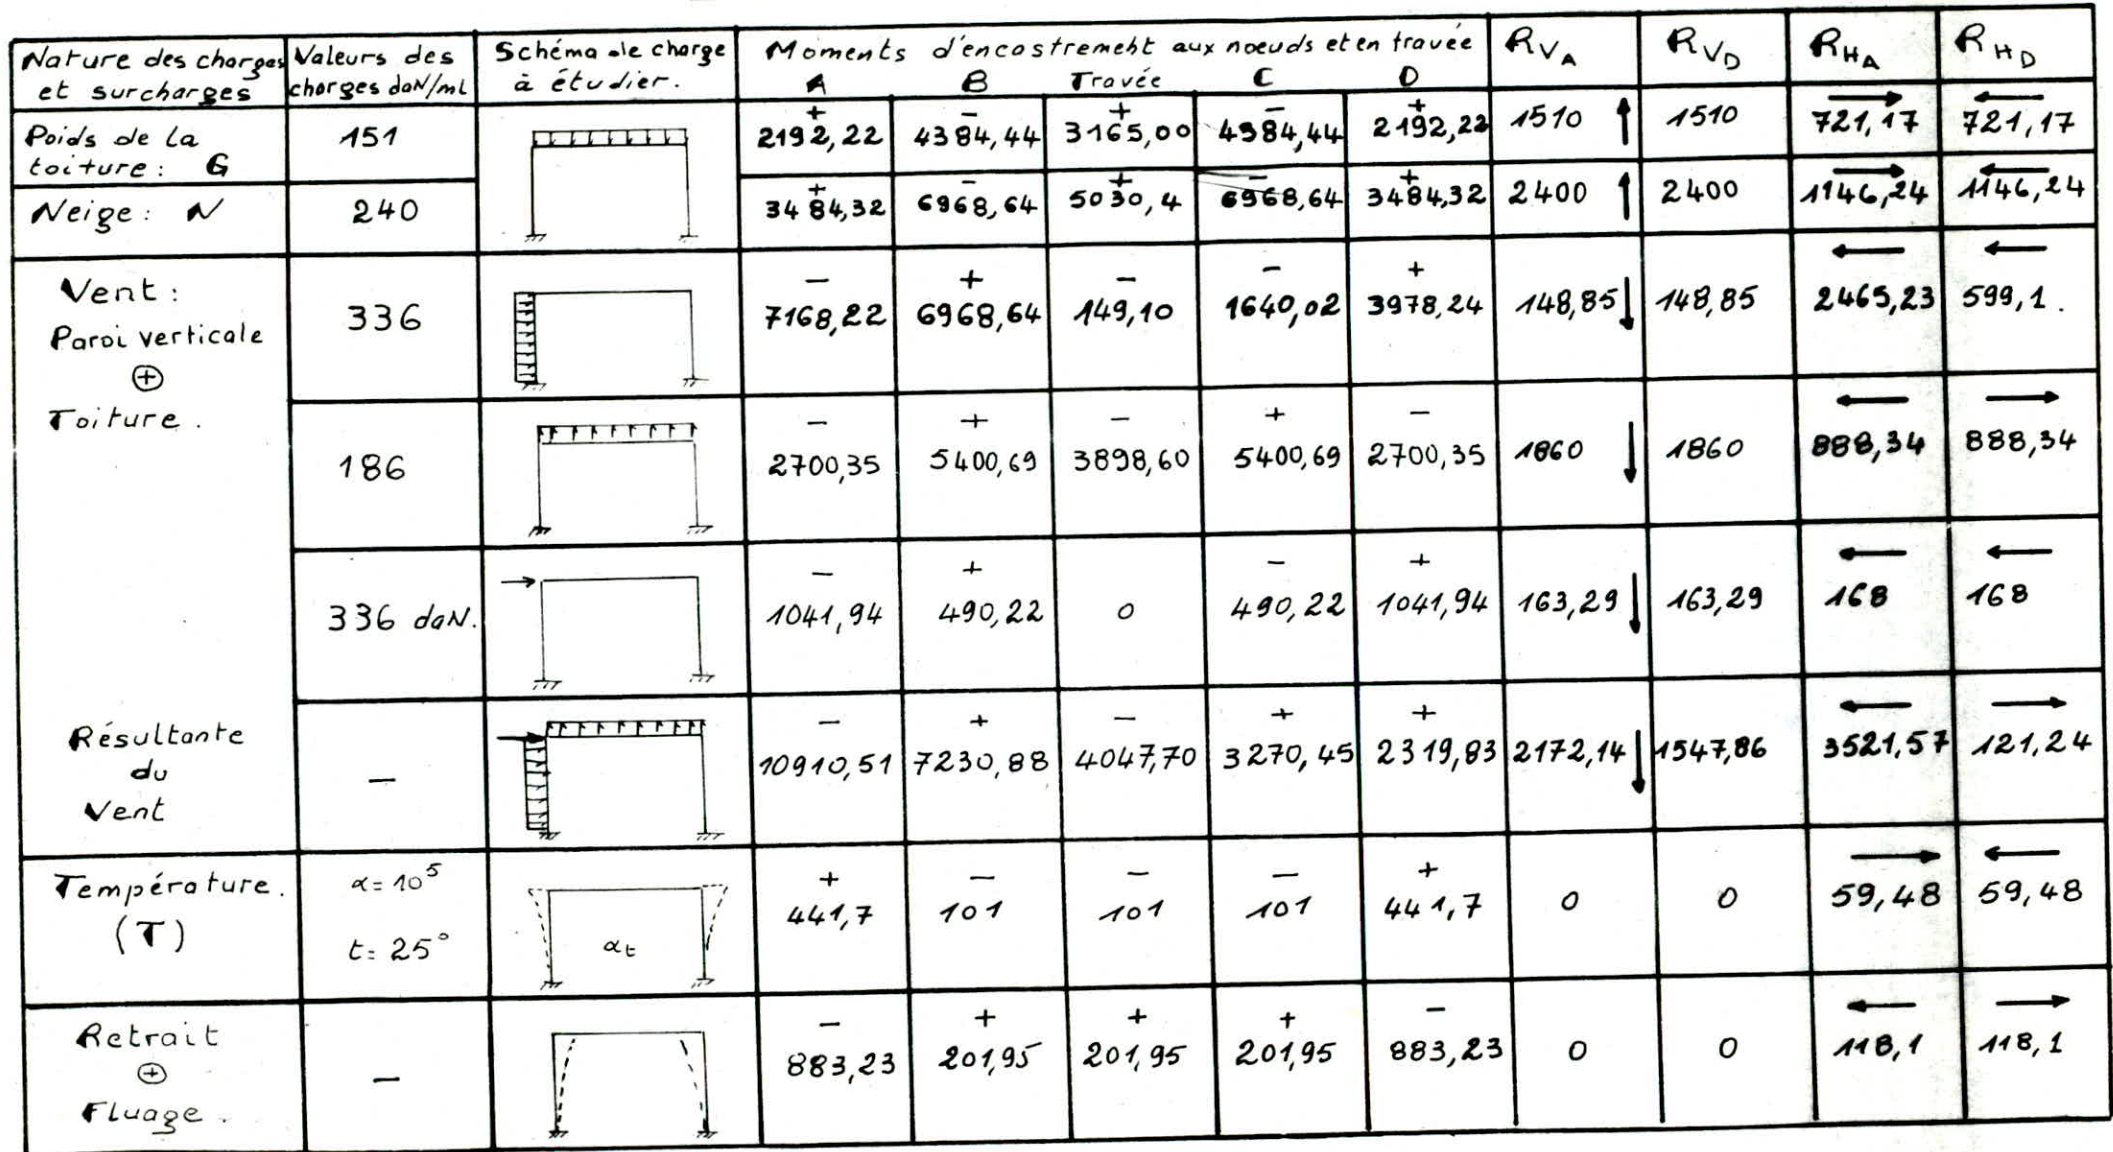 Nature des charges et surcharges | Valeurs des charges daN/ml | Schéma de charge à étudier. | Moments d'encastrement aux noeuds et en travée | RVA | RVD | RHA | RHD
A | B | Travée | C | D
Poids de la toiture : G | 151 | + 2192,22 | − 4384,44 | + 3165,00 | − 4384,44 | + 2192,22 | 1510 ↑ | 1510 | → 721,17 | ← 721,17
Neige : N | 240 | + 3484,32 | − 6968,64 | + 5030,4 | − 6968,64 | + 3484,32 | 2400 ↑ | 2400 | → 1146,24 | ← 1146,24
Vent : Paroi verticale ⊕ Toiture . | 336 | − 7168,22 | + 6968,64 | − 149,10 | − 1640,02 | + 3978,24 | 148,85 ↓ | 148,85 | ← 2465,23 | ← 599,1 .
186 | − 2700,35 | + 5400,69 | − 3898,60 | + 5400,69 | − 2700,35 | 1860 ↓ | 1860 | ← 888,34 | → 888,34
336 daN. | − 1041,94 | + 490,22 | 0 | − 490,22 | + 1041,94 | 163,29 ↓ | 163,29 | ← 168 | ← 168
Résultante du Vent | — | − 10910,51 | + 7230,88 | − 4047,70 | + 3270,45 | + 2319,83 | 2172,14 ↓ | 1547,86 | ← 3521,57 | → 121,24
Température. (T) | α= 10⁵ t= 25° | αt | + 441,7 | − 101 | − 101 | − 101 | + 441,7 | 0 | 0 | → 59,48 | ← 59,48
Retrait ⊕ Fluage . | — | − 883,23 | + 201,95 | + 201,95 | + 201,95 | − 883,23 | 0 | 0 | ← 118,1 | → 118,1